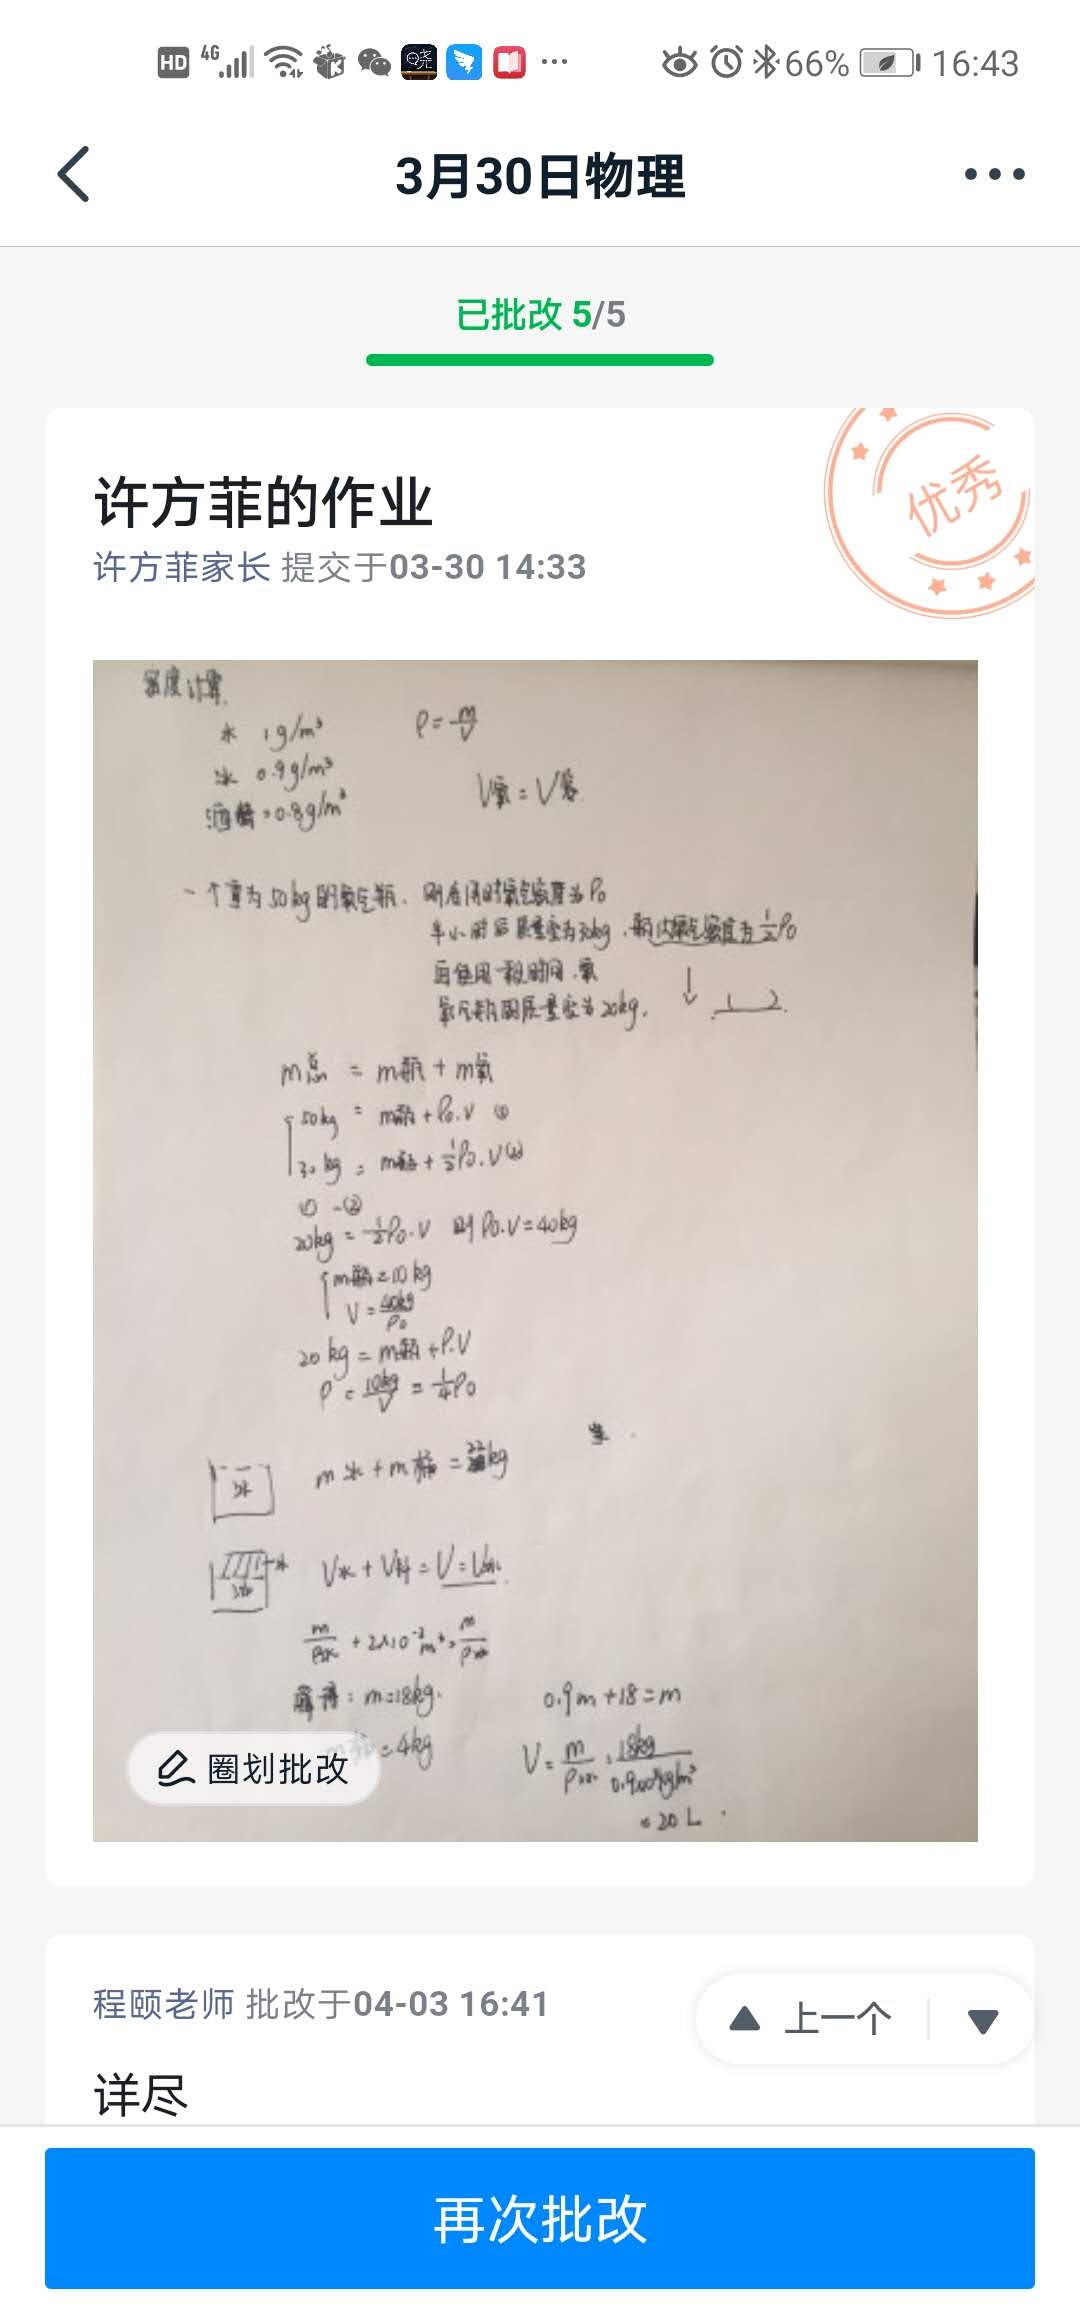 HD 4G 66% 16:43
3月30日物理
已批改 5/5
优秀
许方菲的作业
许方菲家长 提交于03-30 14:33
密度计算
水 1g/m³ ρ=m/V
冰 0.9g/m³
V氧=V容
酒精=0.8g/m³
一个重为50kg的氧气瓶、刚启用时氧气密度为ρ0
半小时后质量变为30kg,瓶内氧气密度为1/2ρ0
再使用一段时间.氧
氧气瓶的质量变为20kg,
m总 = m瓶 + m氧
50kg = m瓶 + ρ0.V ①
30kg = m瓶 + 1/2ρ0.V ②
① - ②
20kg = 1/2ρ0.V 则ρ0.V=40kg
m瓶=10kg
V=40kg/ρ0
20kg = m瓶+ρ.V
ρ = 10kg/V = 1/4ρ0
冰 m水 + m桶 = 22kg
V水 + V料 = V = V
m/ρ水 + 2×10⁻³m³ = m/ρ冰
解得:m=18kg. 0.9m+18=m
=4kg V=m/ρ冰=18kg/
=20L
圈划批改
程颐老师 批改于04-03 16:41
上一个
详尽
再次批改